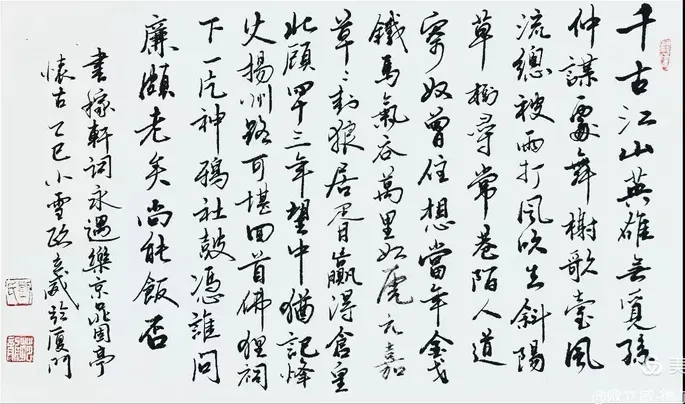 千古江山英雄無覓孫
仲謀處舞榭歌臺風
流總被雨打風吹去斜陽
草樹尋常巷陌人道
寄奴曾住想當年金戈
鐵馬氣吞萬里如虎元嘉
草〻封狼居胥贏得倉皇
北顧四十三年望中猶記烽
火揚州路可堪回首佛狸祠
下一片神鴉社鼓憑誰問
廉頗老矣尚能飯否
書稼軒詞永遇樂京口北固亭
懷古乙巳小雪於廈門